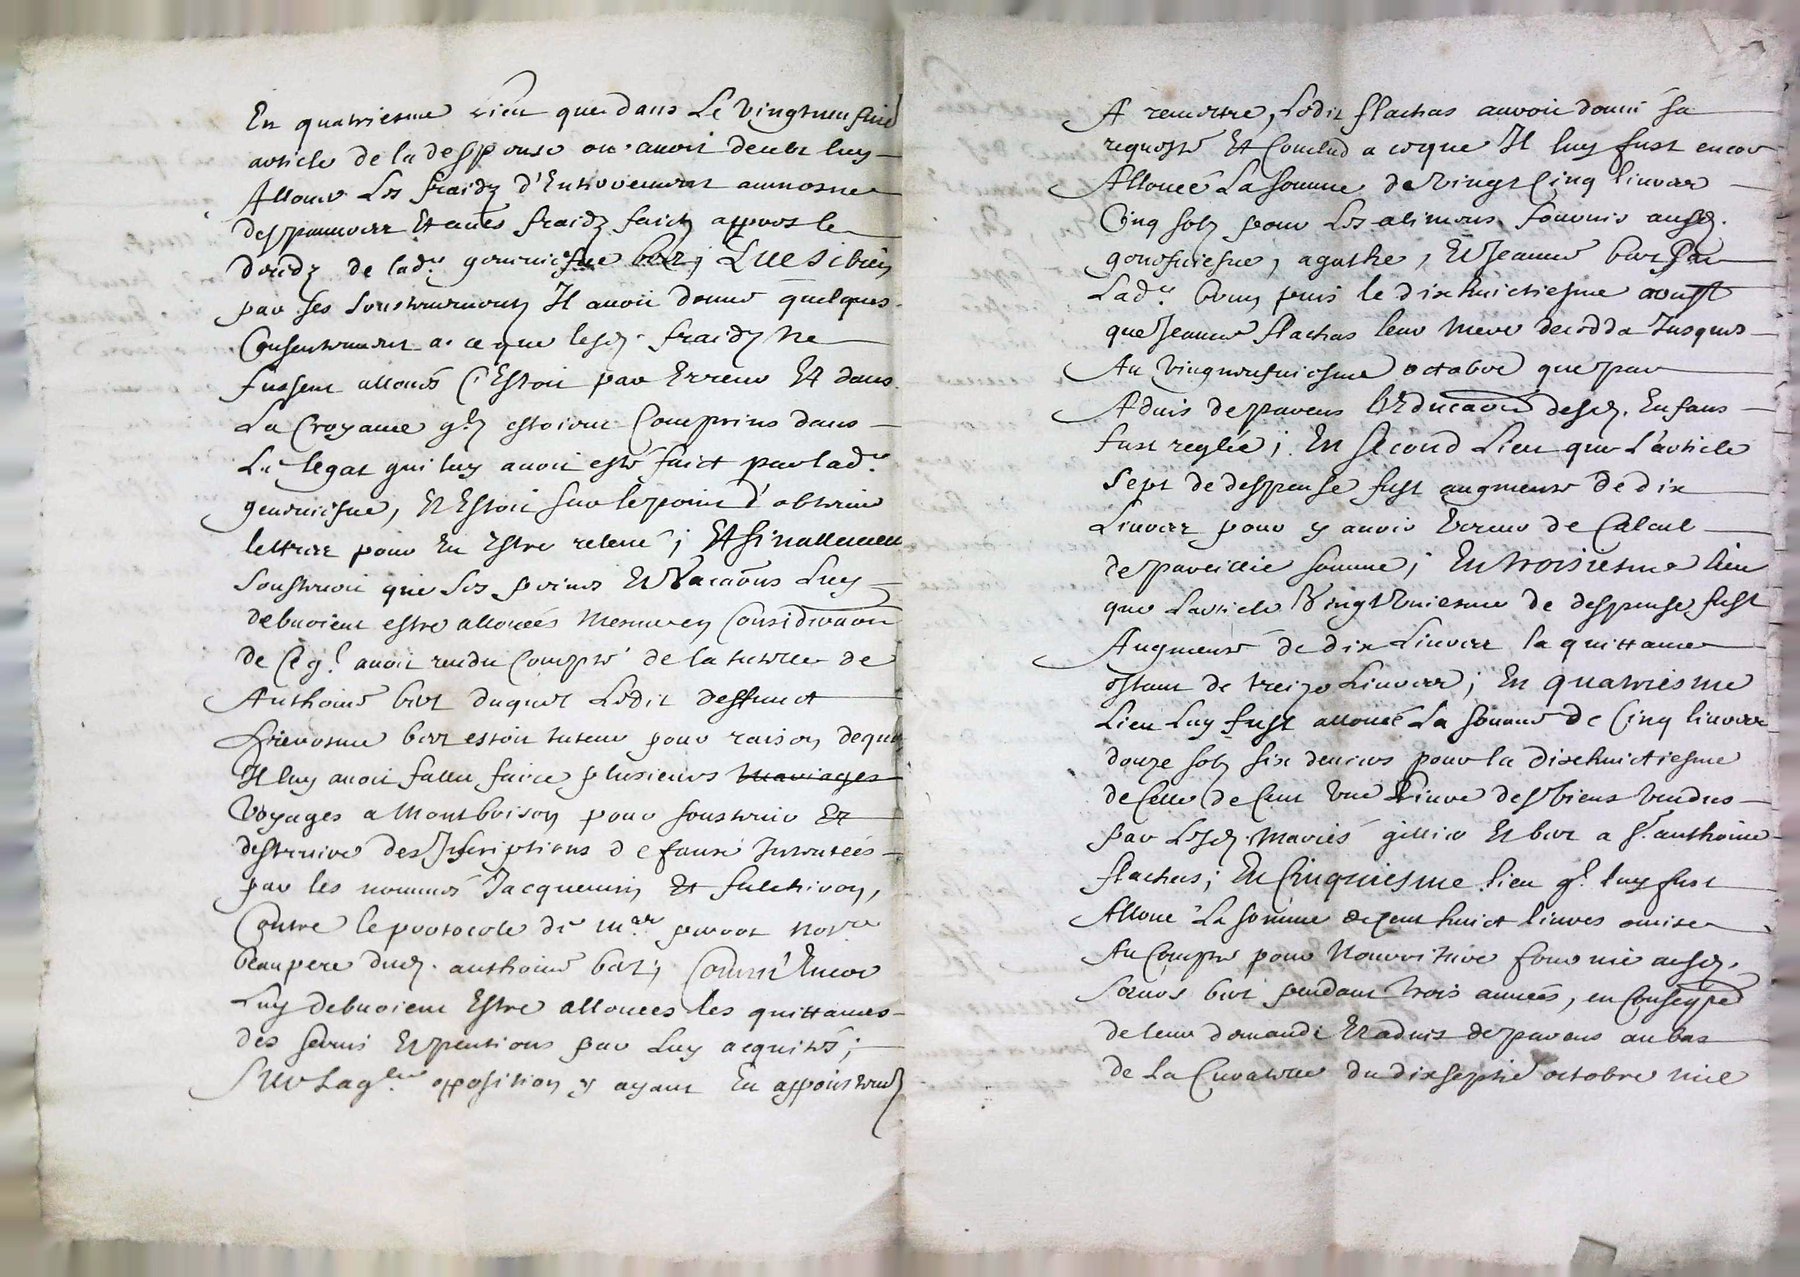 En quatriesme Lieu que dans Le vingtneufvie
article de la despence on avoit deubt luy
Allouer Les fraidz d'Enterrement aumosne
des pauvres Et aues fraidz faictz appres le
decedz de lad.e genevieufve bert; Que si bien
par ses soustenementz Il avoit donné quelques
Consentement a ce que lesd. fraidz Ne
fussent alloués C'Estoit par Erreur Et dans
La Croyance q'lz estoient Comprins dans
Le legat qui luy avoit esté faict par lad.e
geneviefve, Et Estoit sur le point d'obtenir
lettres pour En Estre relevé; Et finallement
Soustenoit que Ses peines Et Vacaons Luy
debvoient estre allouées Mesme en Consideraon
de Ce q'l avoit rendu Compte de la tutelle de
Anthoine bert duquel Ledit deffunct
hierosme bert estoit tuteur pour raison dequoy
Il luy avoit fallu faire plusieurs mariages
Voyages a Montbrison pour soustenir Et
destruire des Inscriptions de faux Intentées
par les nommés Jacquemin Et
Contre le protocole de m.re not.re
beaupere dud. anthoine bert; Comm'Encor
Luy debvoient Estre allouees les quittances
des servis Et pentions par Luy acquités;
Sur Laq.lle opposition y ayant Eu appointement
A remettre, Ledit flachas auroit donné sa
requeste Et Conclud a ceque Il luy fust encor
Allouée La somme de vingt Cinq livres
Cinq solz pour Les alimens fournis ausd.
genevriesve, agathe, Et Jeanne bert par
Lad.e puis le dixhuictiesme aoust
que Jeanne flachas leur Mere deceda Jusques
Au vingtneufviesme octobre que par
Advis de parens L'Educaon desd. Enfans
fust reglée; En second Lieu que L'article
Sept de despense fust augmenté de dix
Livres pour y avoir Erreur de Calcul
de pareillie somme; En troisiesme lieu
que L'article Vingt Uniesme de despense fust
Augmenté de dix Livres la quittance
estant de treize Livres; En quatriesme
Lieu Luy fust allouée La somme de Cinq livres
douze solz six deniers pour la dixhuictiesme
de Celle de Cent Une Livre des biens vendus
par Lesd. Mariés gillier Et bert a S.r anthoine
flachas; En Cinquiesme lieu q'l luy fust
Alloué La somme de cent huict livres omise
Au Compte pour Nourriture fournie ausd.
Seurs bert pendant trois années, en Conseq
de leur demande Et advis de parens au bas
de La Curatelle du dixseptie octobre mil